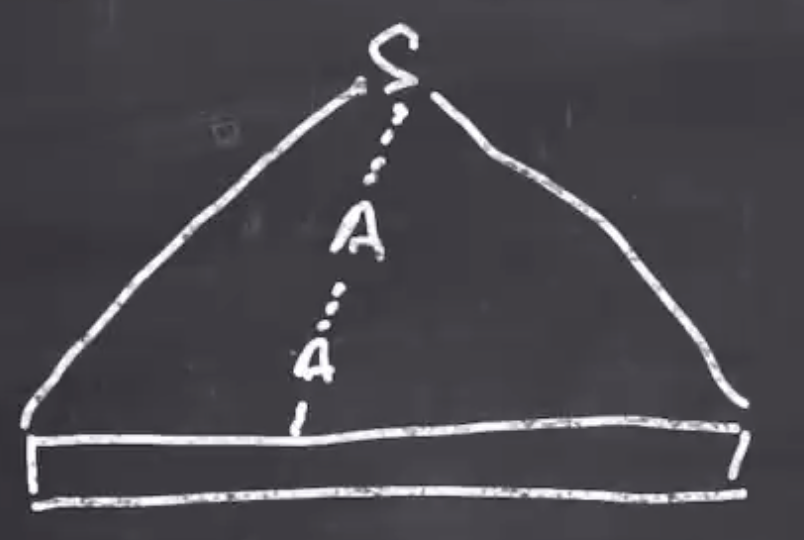 S
A
A